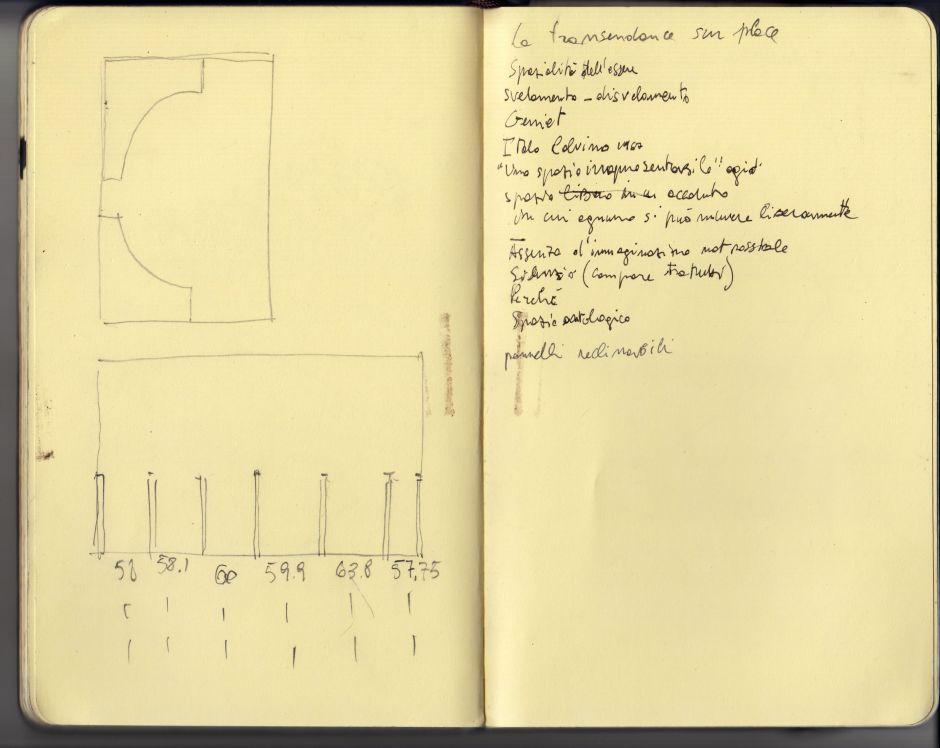 58 58.1 60 59.9 63.8 57.75
La transendance sur place
Spazialità dell'essere
svelamento - disvelamento
Genet
Italo Calvino
"Uno spazio irrapresentabile" agio
spazio libero in cui accaduto
in cui ognuno si può muovere liberamente
Assenza d'immaginazione not possible
Silenzio (compare
Perché
Spazio ontologico
pannelli reclinabili